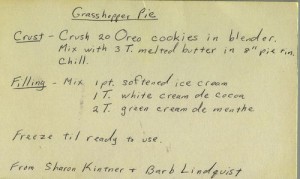 Grasshopper Pie
Crust - Crush 20 Oreo cookies in blender.
Mix with 3 T. melted butter in 8" pie pan.
Chill.
Filling - Mix 1 pt. softened ice cream
1 T. white cream de cocoa
2 T. green cream de menthe
Freeze til ready to use.
From Sharon Kintner + Barb Lindquist